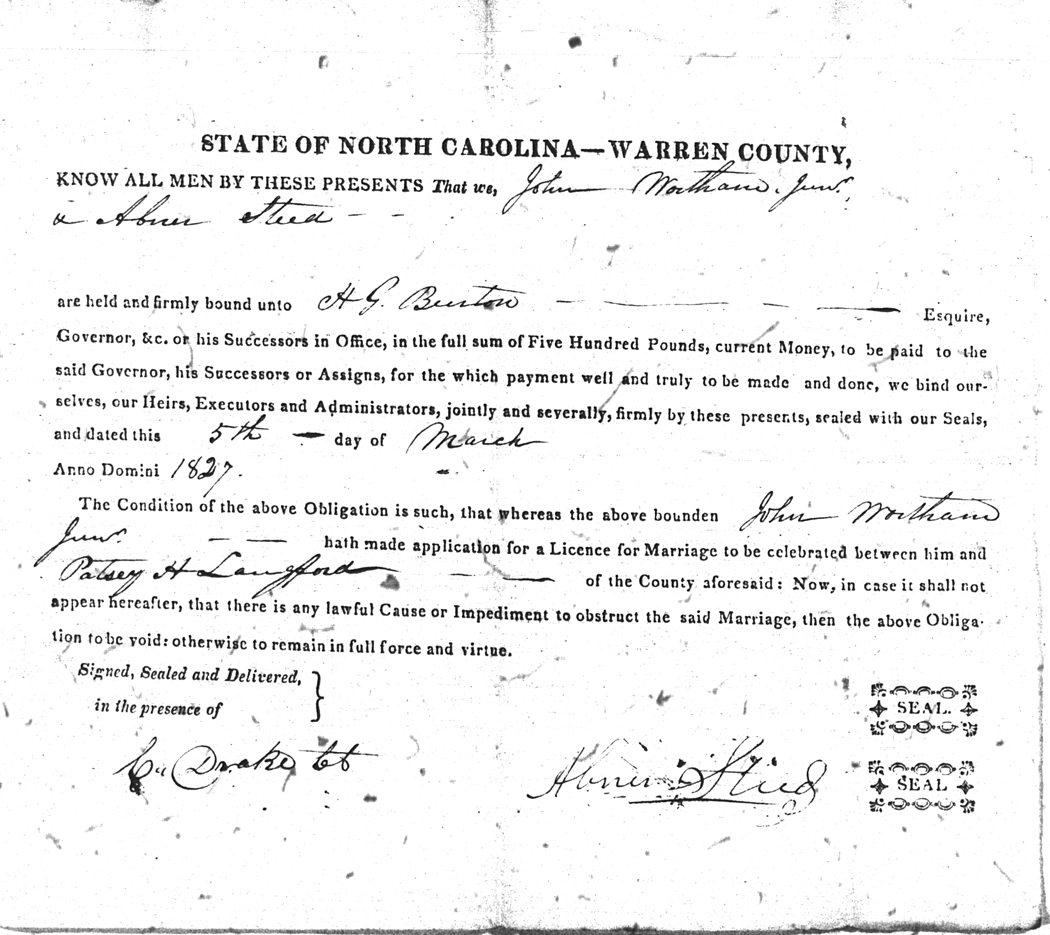 STATE OF NORTH CAROLINA—WARREN COUNTY,
KNOW ALL MEN BY THESE PRESENTS That we, John Wortham Junr.
& Abner Steed - -
are held and firmly bound unto H G Burton — — — — Esquire,
Governor, &c. or his Successors in Office, in the full sum of Five Hundred Pounds, current Money, to be paid to the
said Governor, his Successors or Assigns, for the which payment well and truly to be made and done, we bind our-
selves, our Heirs, Executors and Administrators, jointly and severally, firmly by these presents, sealed with our Seals,
and dated this 5th — day of March
Anno Domini 1827.
The Condition of the above Obligation is such, that whereas the above bounden John Wortham
Junr. — — hath made application for a Licence for Marriage to be celebrated between him and
Patsey H Langford — — of the County aforesaid: Now, in case it shall not
appear hereafter, that there is any lawful Cause or Impediment to obstruct the said Marriage, then the above Obliga-
tion to be void: otherwise to remain in full force and virtue.
Signed, Sealed and Delivered,
in the presence of
SEAL.
Drake
Abner Steed
SEAL